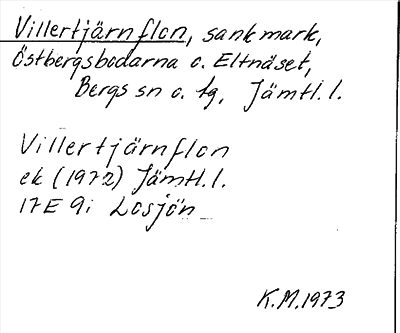 Villertjärnflon, sank mark,
Östbergsbodarna o. Eltnäset,
Bergs sn o. tg, Jämtl. l.
Villertjärnflon
ek (1972) Jämtl. l.
17E 9i Losjön
K.M. 1973